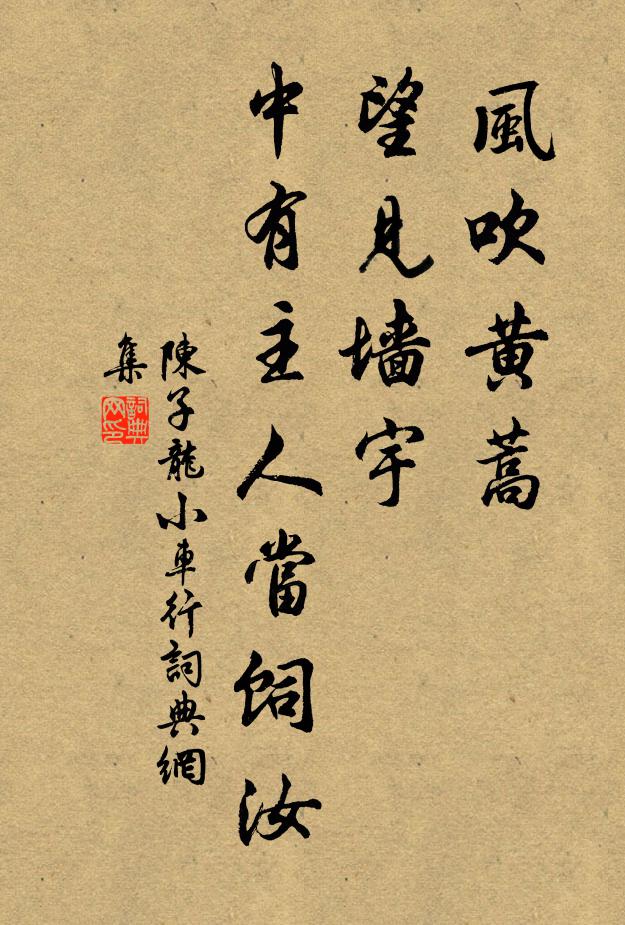 風吹黄蒿
望見墻宇
中有主人當飼汝
陳子龍小車行詞典網
集
詞典
网印